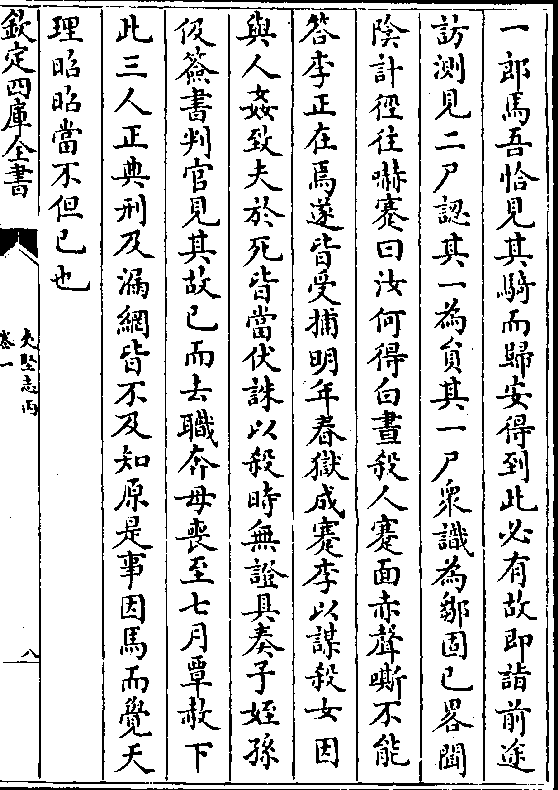 一郎馬吾恰見其騎而歸安得到此必有故即詣前途
訪測見二尸認其一為貟其一尸衆識為鄒固已畧聞
隂計徑往嚇蹇曰汝何得白晝殺人蹇面赤聲嘶不能
答李正在焉遂皆受捕明年春獄成蹇李以謀殺女因
與人姦致夫於死皆當伏誅以殺時無證具奏子姪孫
伋簽書判官見其故已而去職奔母喪至七月覃赦下
此三人正典刑及漏網皆不及知原是事因馬而覺天
理昭昭當不但已也
欽定四庫全書
夷堅志丙
卷一
八